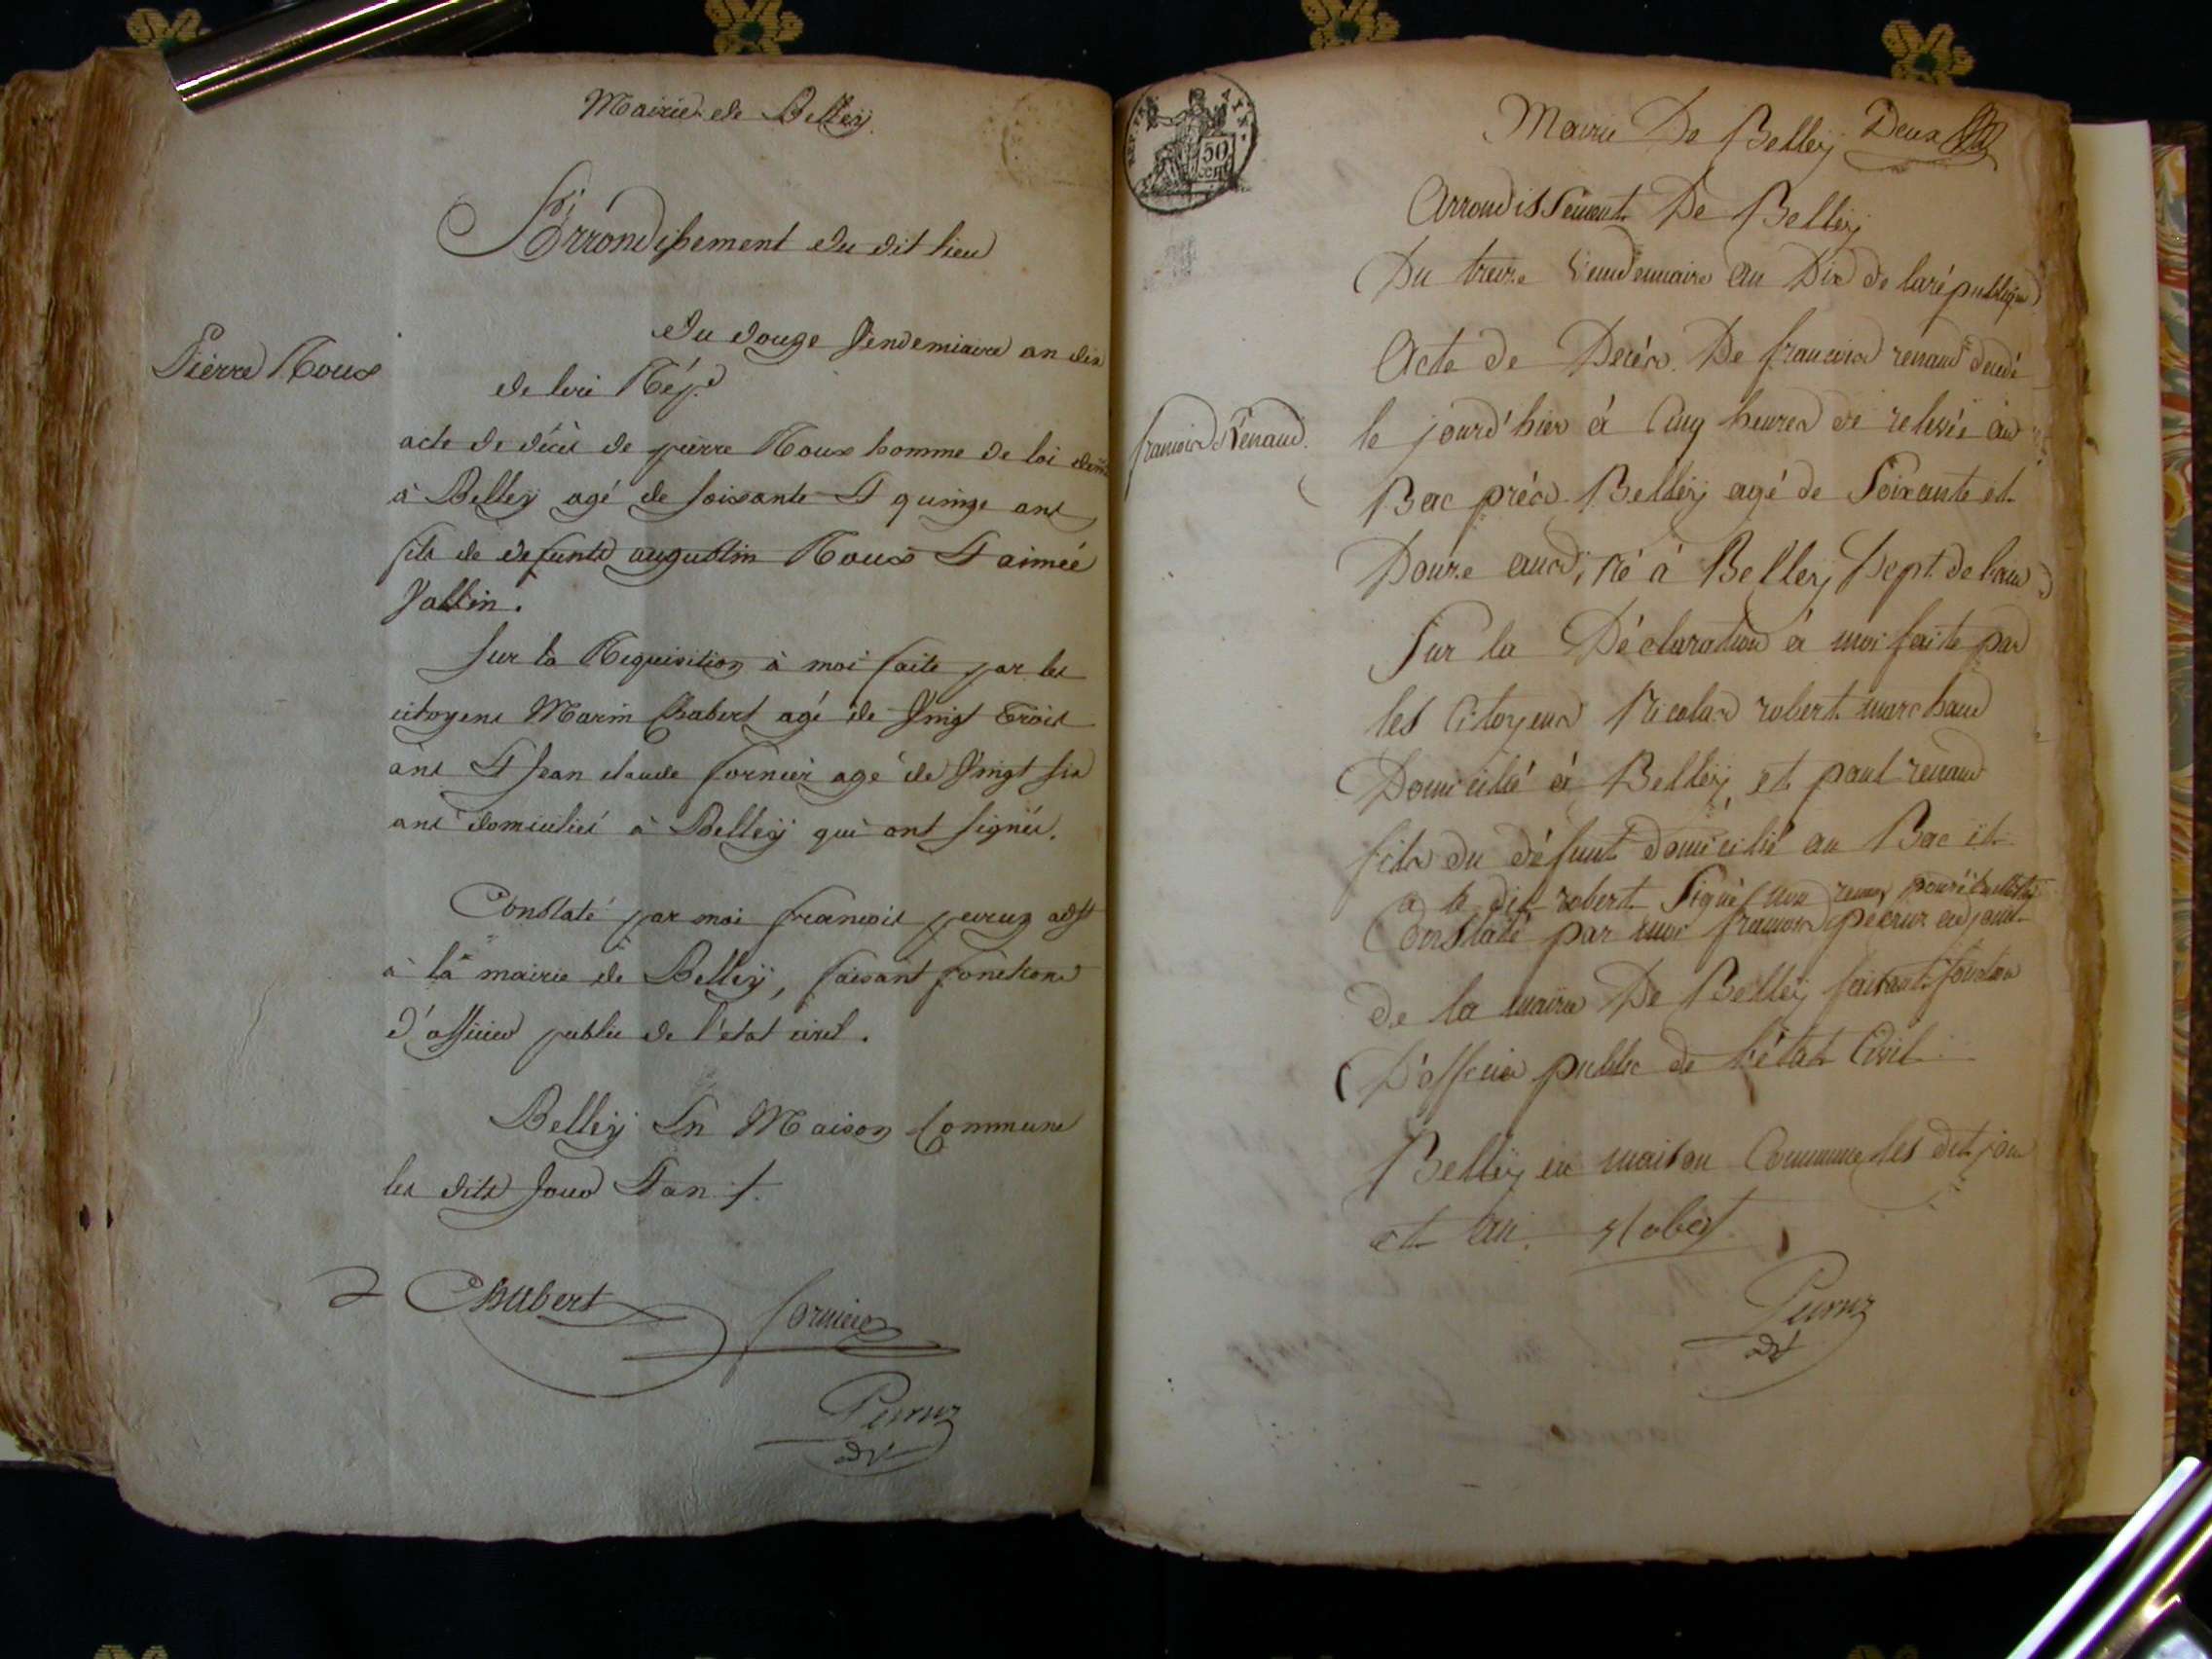 Mairie de Belley
Arrondissement du dit lieu
du douze Vendemiaire an dix
de la Rép.
Pierre Roux
acte de décès de pierre Roux homme de loi
à Belley agé de soixante Et quinze ans
fils de defunts augustin Roux Et aimée
Vallin.
Sur la Requisition à moi faite par les
citoyens Marin Chabert agé de Vingt Trois
ans Et Jean claude fornier agé de Vingt six
ans domiciliés à Belley qui ont signés.
Constaté par moi francois peuruz adjt
à la mairie de Belley, faisant fonctions
d'officier public de l'état civil.
Belley En Maison Commune
les dits Jour Et an
Chabert fornier
Peuruz
adjt
50
Mairie De Belley Deux
Arrondissement De Belley
Du treize Vendemiaire an Dix de la république
Acte de Décés De francois renaud décédé
francois Renaud
le jourd'hier à Cinq heures de relevée au
Bac prés Belley agé de Soixante et
Douze ans, Né à Belley Dept. de l'ain
Sur la Déclaration à moi faite par
les Citoyens Nicolas robert marchand
Domicilié à Belley et paul renaud
fils du défunt domicilié au Bac et
a le dit robert Signé non
Constaté par moi francois peuruz adjoint
de la mairie De Belley faisant fonction
D'officier public de l'état Civil
Belley en maison Commune les dit jour
et an. Robert
Peuruz
adjt